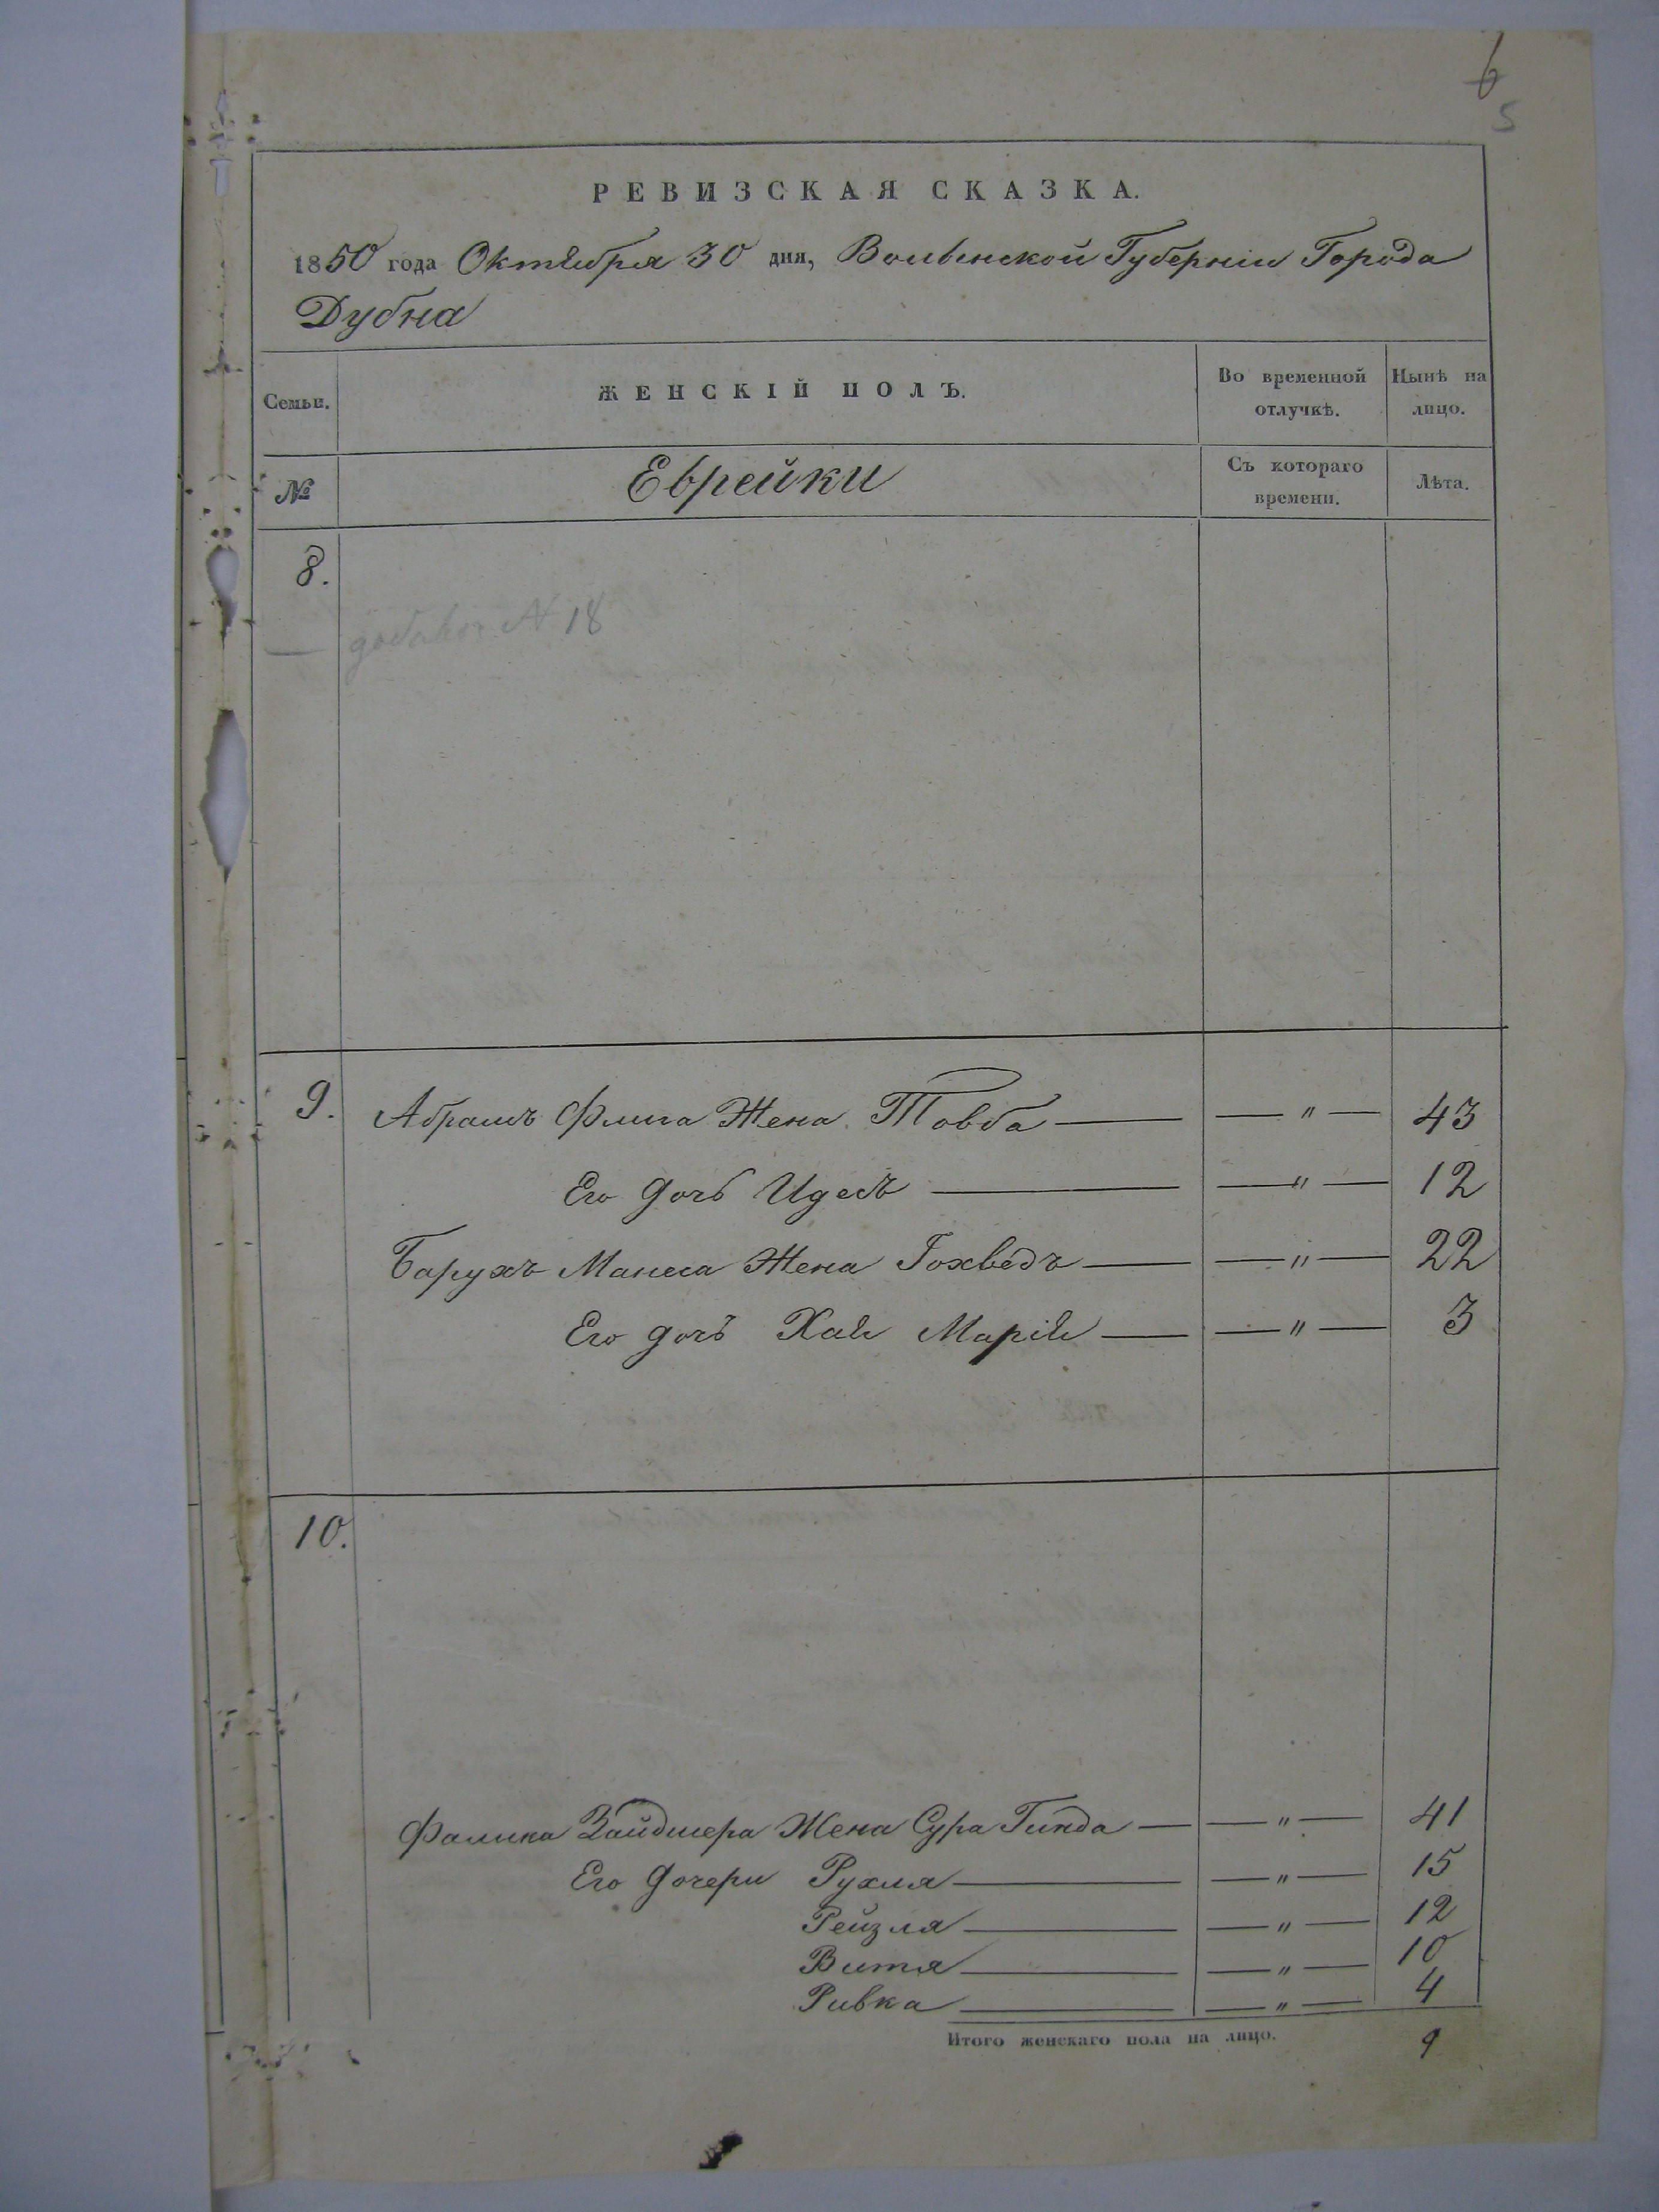 6
5
РЕВИЗСКАЯ СКАЗКА.
1850 года Октября 30 дня, Волынской Губерніи Города
Дубна
Семьи. ЖЕНСКІЙ ПОЛЪ. Во временной отлучкѣ. Нынѣ на лицо.
№ Еврейки Съ котораго времени. Лѣта.
8.
№ 18
9. Абрамъ Флига Жена Товба — — " — 43
Его дочь Идесъ — — " — 12
Барухъ Манеса Жена Іохведъ — — " — 22
Его дочь Хая Марія — — " — 3
10.
Фалика Зайдмера Жена Сура Гинда — — " — 41
Его дочери Рухля — — " — 15
Рейзля — — " — 12
Витя — — " — 10
Ривка — — " — 4
Итого женскаго пола на лицо. 9